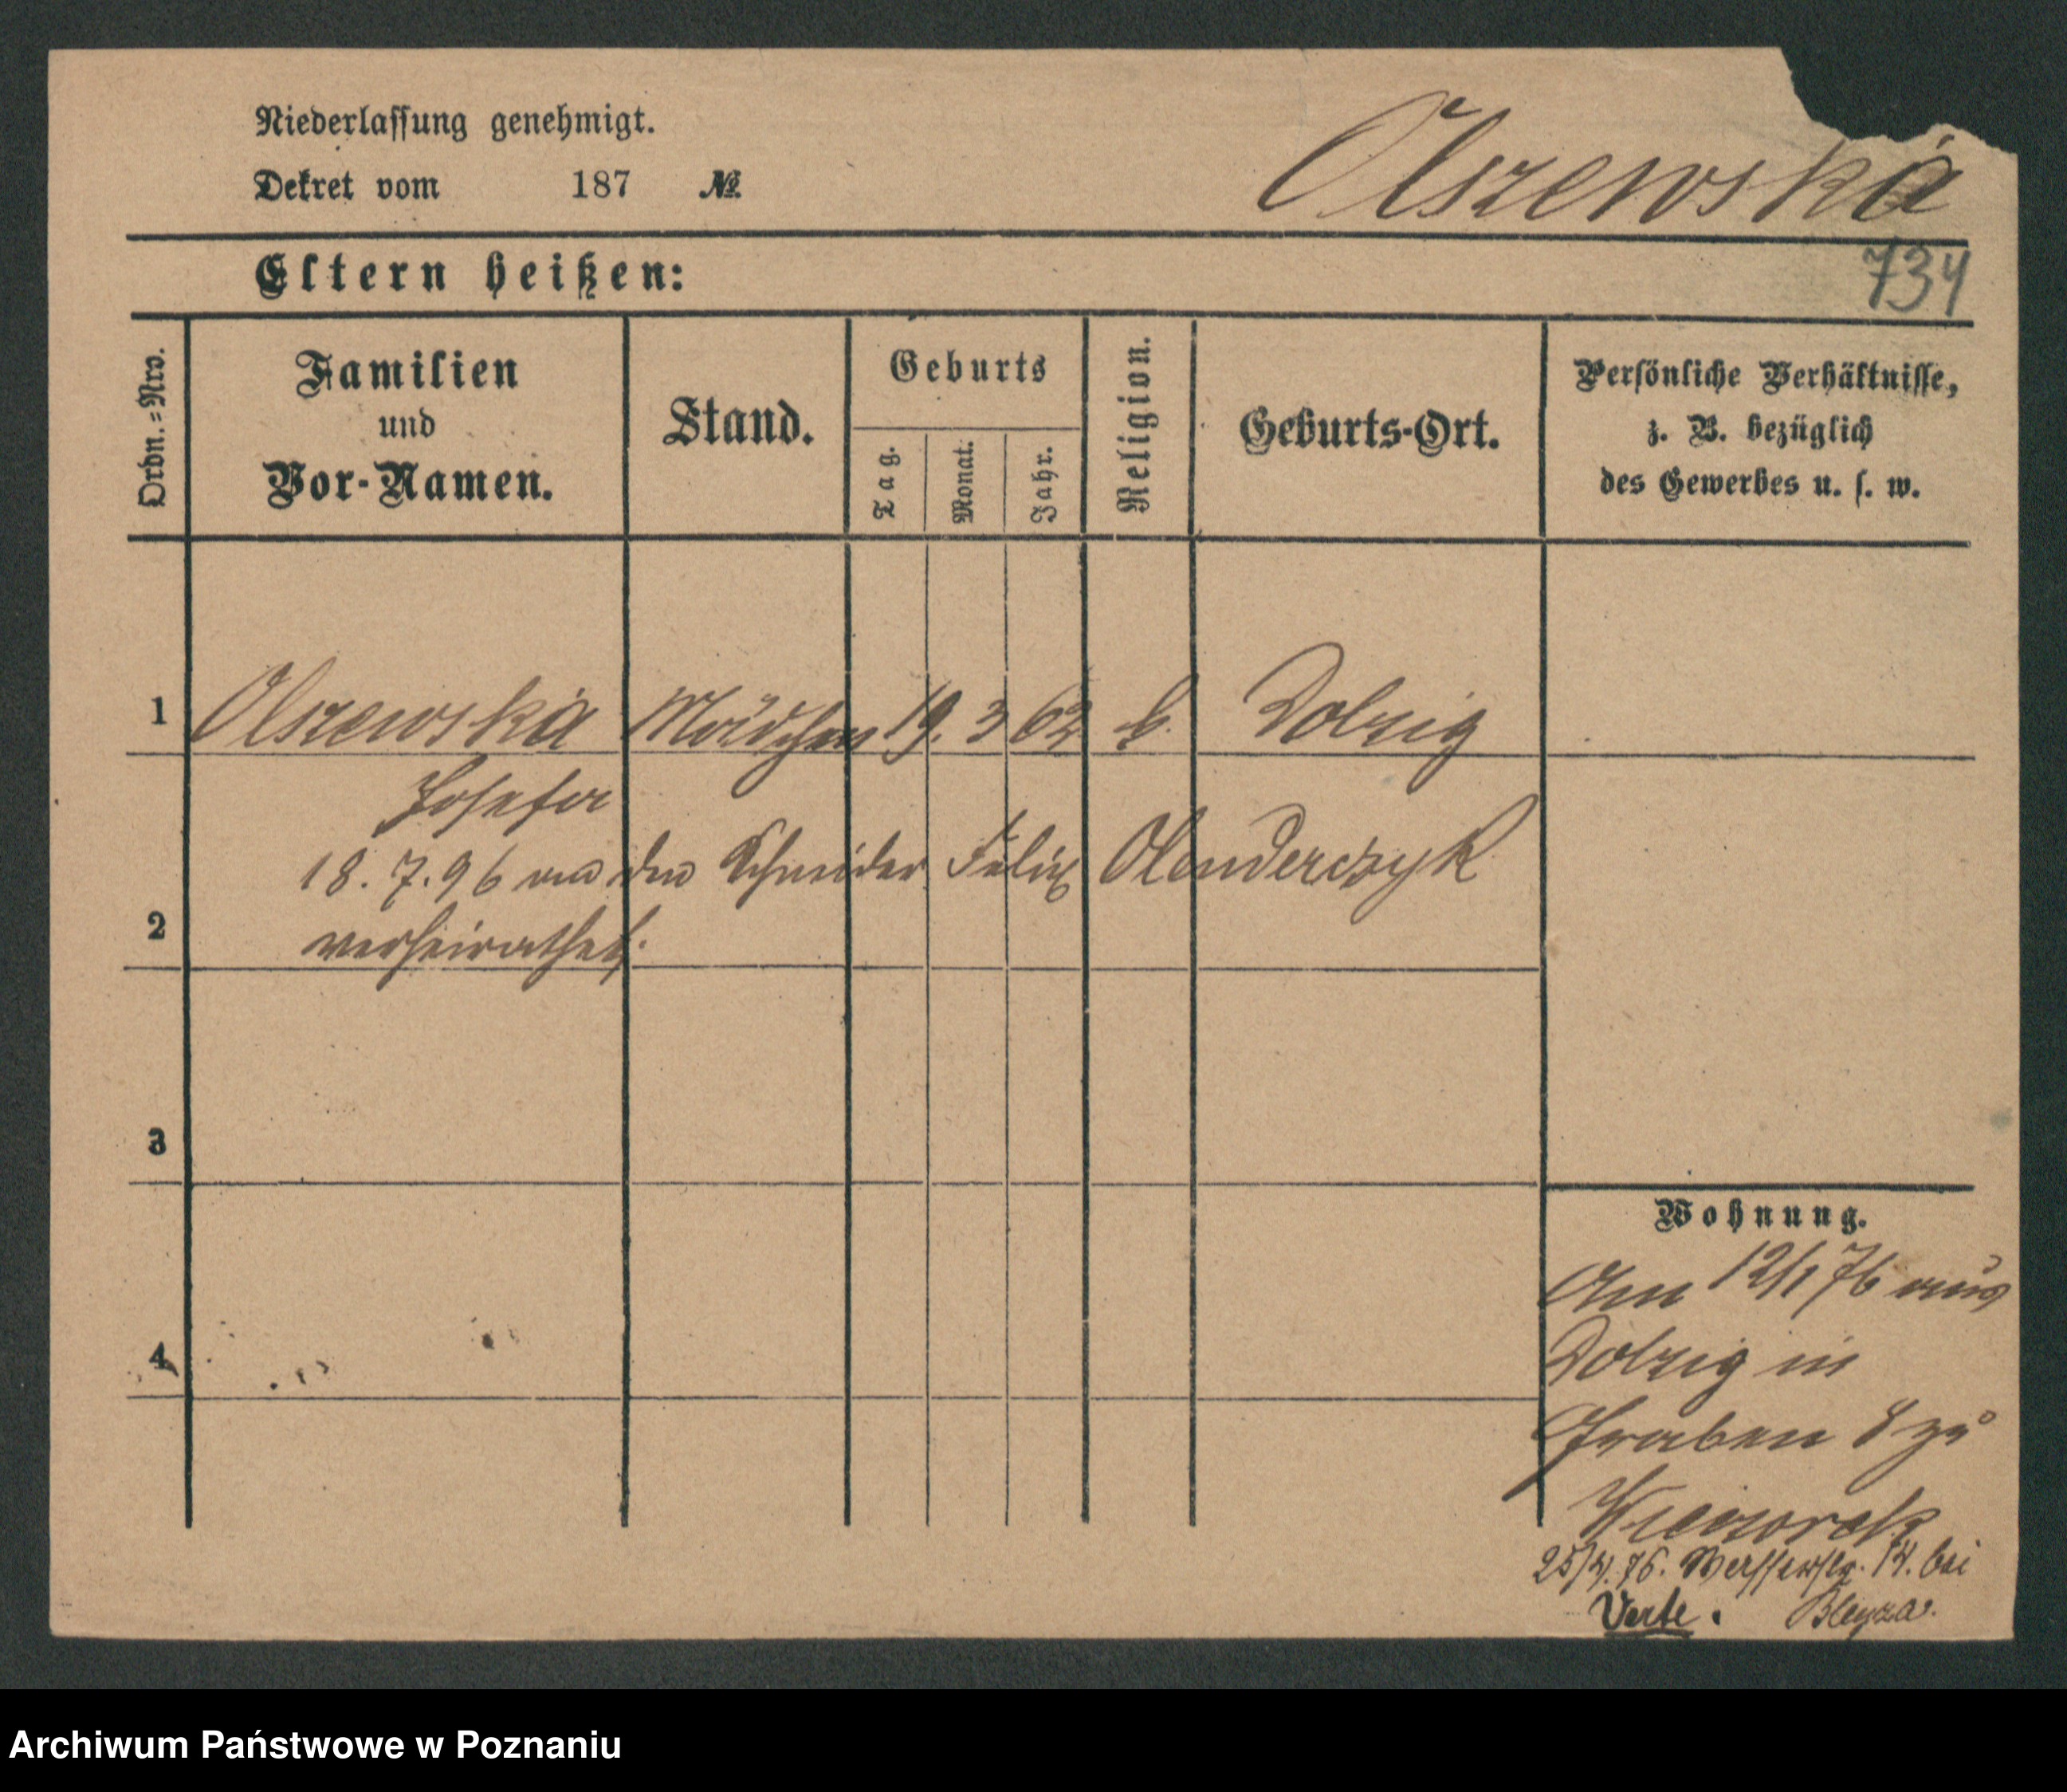 Niederlassung genehmigt.
Dekret vom 187 №
Olszewska
734
Eltern heißen:
Ordn.=Nro.
Familien
und
Vor-Namen.
Stand.
Geburts
Tag.
Monat.
Jahr.
Religion.
Geburts-Ort.
Persönliche Verhältnisse,
z. B. bezüglich
des Gewerbes u. s. w.
1 Olszewska Mädchen 19. 3 62 k. Dolzig
Josefa
18. 7. 96 an den Schneider Felix Olenderczyk
2 verheirathet.
3
4
Wohnung.
Am 12/1 76 aus
Dolzig in
Graben 8 zu
Wieczorek
25/4. 76. 14. bei
Verte.